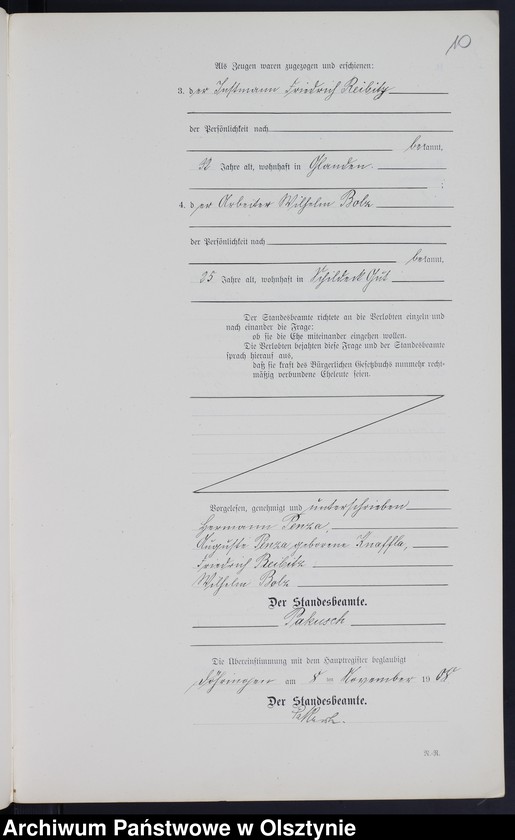 10
Als Zeugen waren zugezogen und erschienen:
3. der Instmann Friedrich Reibitz
der Persönlichkeit nach
bekannt,
Jahre alt, wohnhaft in Glanden.
4. der Arbeiter Wilhelm Bolz
der Persönlichkeit nach
bekannt,
35 Jahre alt, wohnhaft in Schildeck Gut
Der Standesbeamte richtete an die Verlobten einzeln und
nach einander die Frage:
ob sie die Ehe miteinander eingehen wollen.
Die Verlobten bejahten diese Frage und der Standesbeamte
sprach hierauf aus,
daß sie kraft des Bürgerlichen Gesetzbuchs nunmehr recht-
mäßig verbundene Eheleute seien.
Vorgelesen, genehmigt und unterschrieben
Hermann Penza.
Auguste Penza geborene Knaffla,
Friedrich Reibitz
Wilhelm Bolz
Der Standesbeamte.
Pakusch
Die Übereinstimmung mit dem Hauptregister beglaubigt
Döhringen am 8 ten November 1908
Der Standesbeamte.
N.-R.
Archiwum Państwowe w Olsztynie